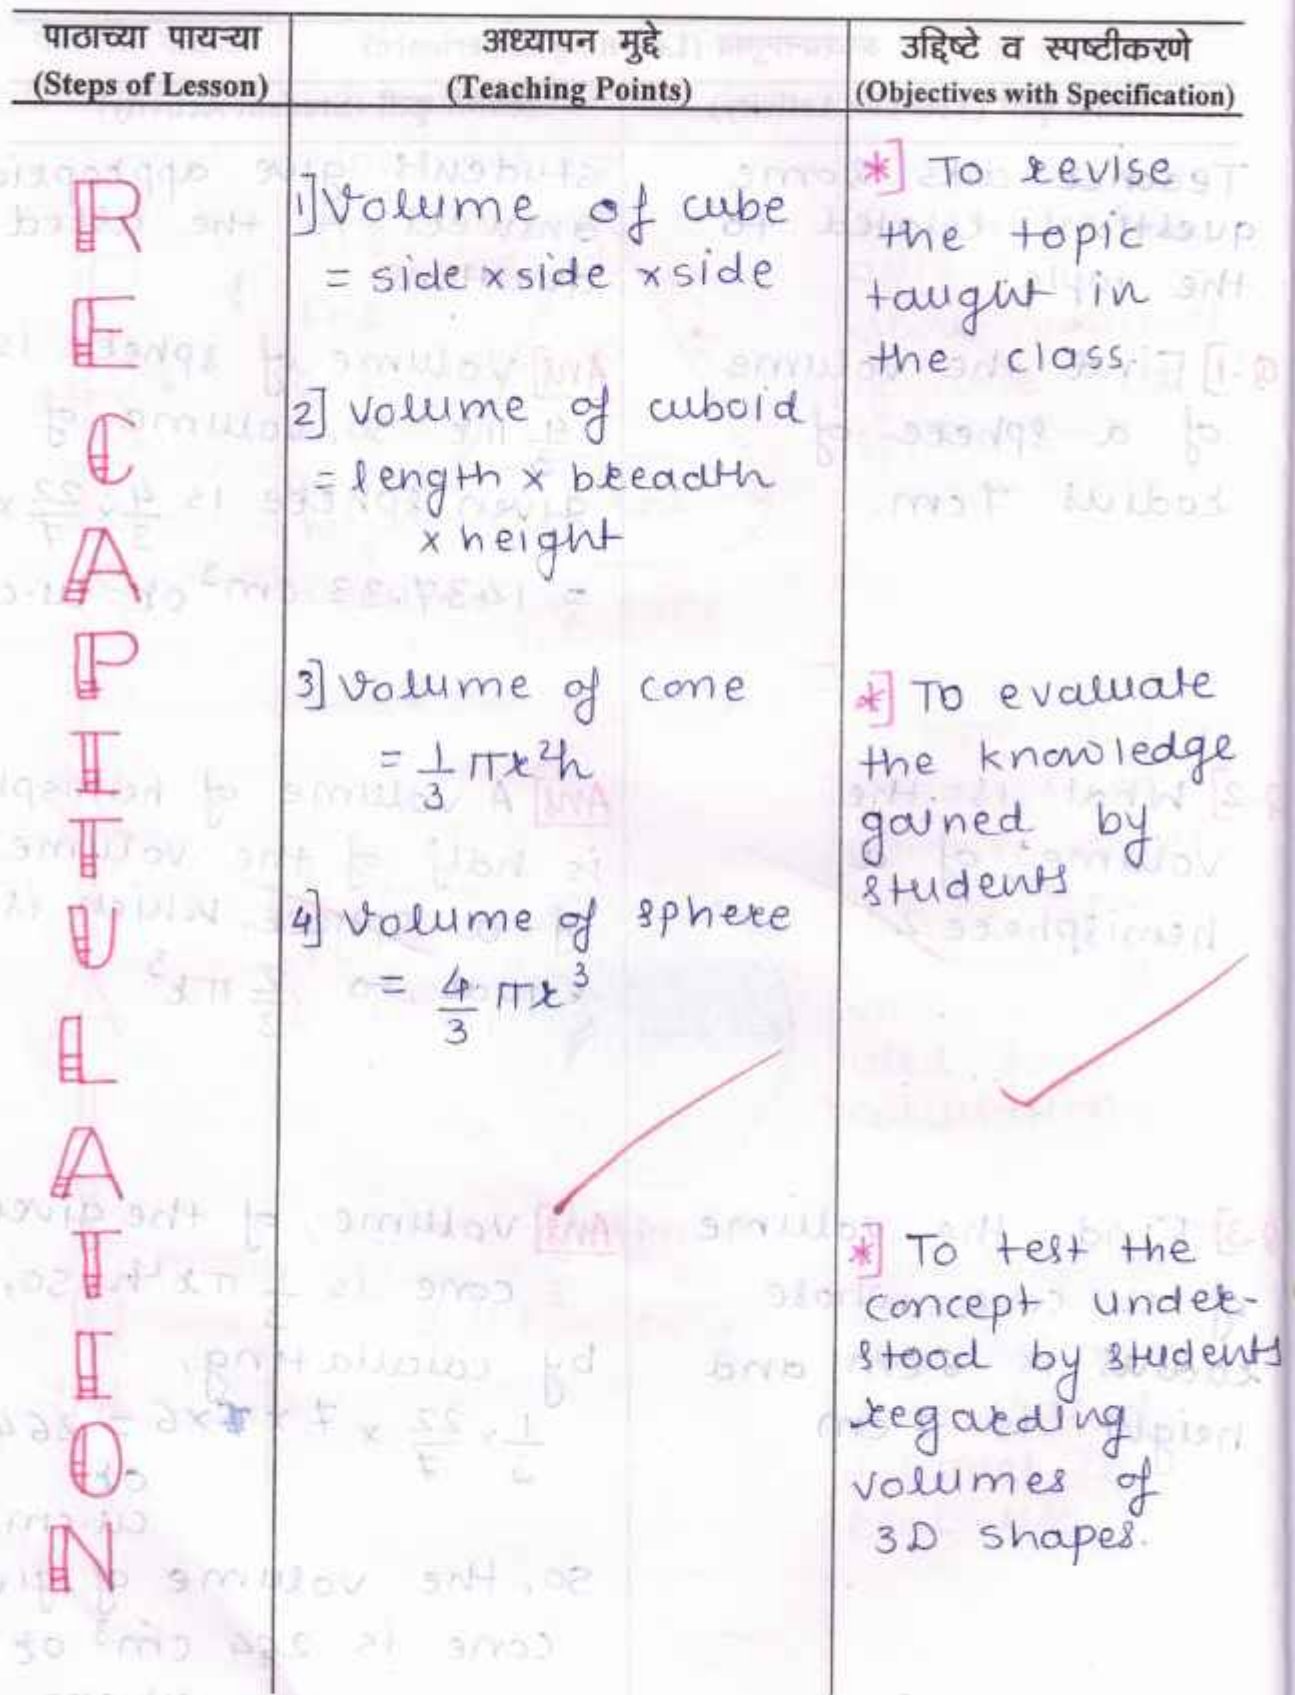 पाठाच्या पायऱ्या
(Steps of Lesson)
अध्यापन मुद्दे
(Teaching Points)
उद्दिष्टे व स्पष्टीकरणे
(Objectives with Specification)
RECAPITULATION
1] Volume of cube
= side x side x side
2] volume of cuboid
= length x breadth
x height
3] Volume of cone
= 1/3 πr²h
4] Volume of sphere
= 4/3 πr³
*] To revise
the topic
taught in
the class.
*] To evaluate
the knowledge
gained by
students
*] To test the
concept under-
stood by students
regarding
volumes of
3D shapes.